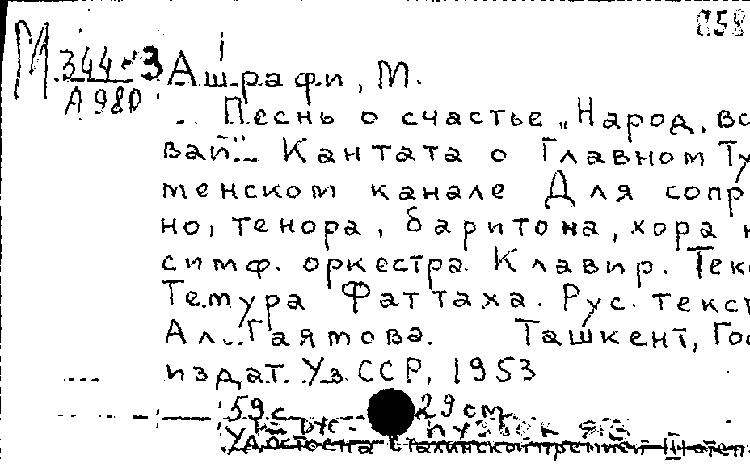 058
М 344-3
А 980
Ашрафи, М.
Песнь о счастье „Народ, вс
вай"... Кантата о Главном Ту
менском канале Для сопр
но, тенора, баритона, хора и
симф. оркестра. Клавир. Тек
Темура Фаттаха. Рус. текст
Ал. Гаямова. Ташкент, Гос
издат. Уз.ССР, 1953
59 с. 29 см.
На рус. и узбек яз
Удостоена Сталинской премии II степ